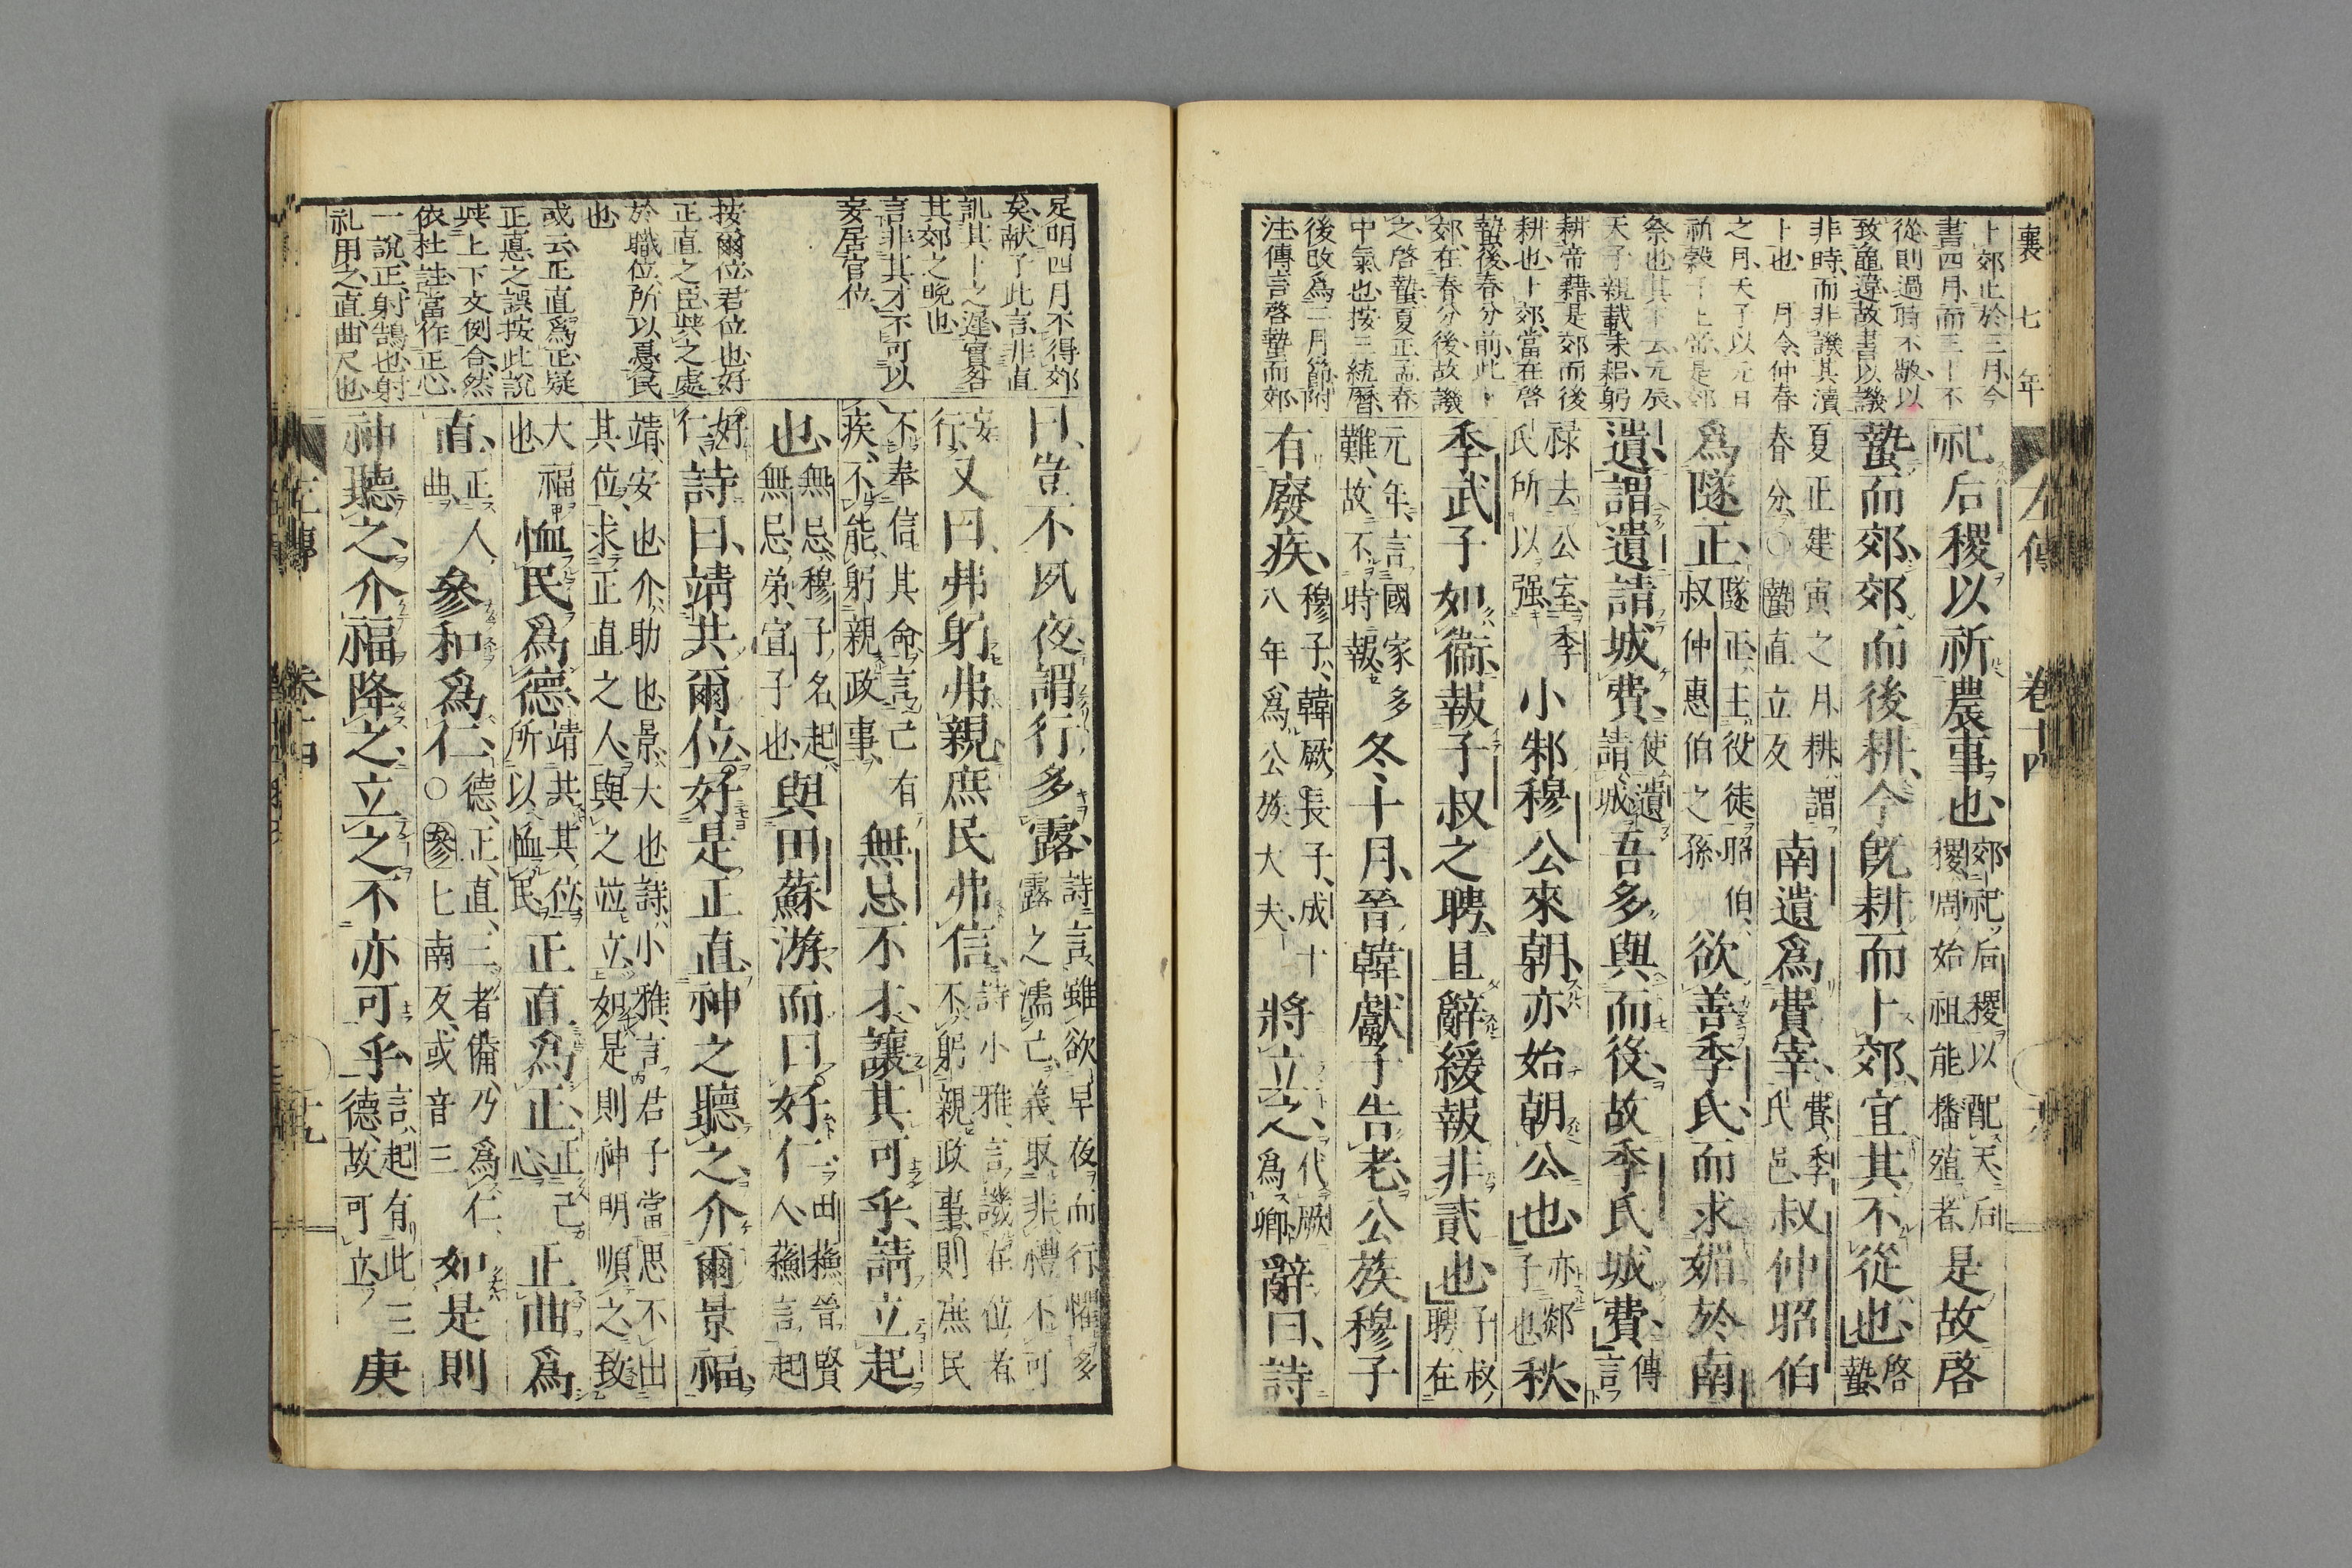 襄 七年
左傳 卷十四
卜郊止於三月今
書四月而三卜不
從則過時不敬以
致龜違故書以譏
非時而非譏其瀆
卜也 月令仲春
之月天子以元日
祈穀于上帝是郊
祭也其下云元辰
天子親載耒耜躬
耕帝藉是郊而後
耕也卜郊當在啓
蟄後春分前此卜
郊在春分後故譏
之啓蟄夏正孟春
中氣也按三統曆
後改爲二月節附
注傳言啓蟄而郊
祀后稷以祈農事也郊祀后稷以配天后稷周始祖能播殖者是故啓
蟄而郊郊而後耕今既耕而卜郊宜其不從也啓蟄
夏正建寅之月耕謂春分〇蟄直立反南遺爲費宰費季氏邑叔仲昭伯
爲隧正隧正主役徒昭伯叔仲惠伯之孫欲善季氏而求媚於南
遺謂遺請城費使遺請城吾多與而役故季氏城費傳言
祿去公室季氏所以强小邾穆公來朝亦始朝公也亦郯子也秋
季武子如衞報子叔之聘且辭緩報非貳也子叔聘在
元年言國家多難故不時報冬十月晉韓獻子告老公族穆子
有廢疾穆子韓厥長子成十八年爲公族大夫將立之代厥爲卿辭曰詩
足明四月不得郊
矣献子此言非直
譏其卜之遲實咎
其郊之晩也
言非其才不可以
妄居官位
按爾位君位也好
正直之臣與之處
於職位所以憂民
也
或云正直爲正疑
正悳之誤按此說
與上下文例合然
依杜註當作正心
一說正射鵠也射
礼用之直曲尺也
曰豈不夙夜謂行多露詩言雖欲早夜而行懼多露之濡己義取非禮不可
妄行又曰弗躬弗親庶民弗信詩小雅言譏在位者不躬親政事則庶民
不奉信其命言己有疾不能躬親政事無忌不才讓其可乎請立起
也無忌穆子名起無忌弟宣子也與田蘇游而曰好仁曲蘇晉賢人蘇言起
好仁詩曰靖共爾位好是正直神之聽之介爾景福
靖安也介助也景大也詩小雅言君子當思不出其位求正直之人與之並立如是則神明順之致
大福也恤民爲德靖共其位所以恤民正直爲正正己心正曲爲
直正人曲參和爲仁德正直三者備乃爲仁〇參七南反或音三如是則
神聽之介福降之立之不亦可乎言起有此三德故可立庚
左傳 卷十四
十九